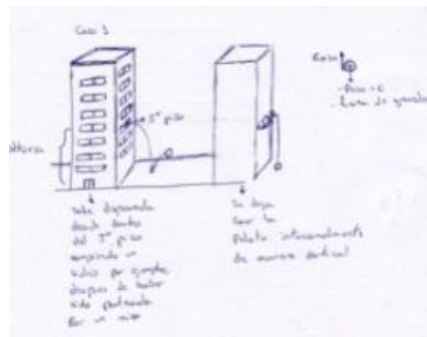 Caso 1
5° piso
altura
Roce
- Peso = 
- Fuerza de gravedad
Sale disparada
desde dentro
del 5° piso
rompiendo un
vidrio por ejemplo,
después de haber
sido pateada
Por un niño
Se deja
caer la
Pelota intencionalmente
de manera vertical